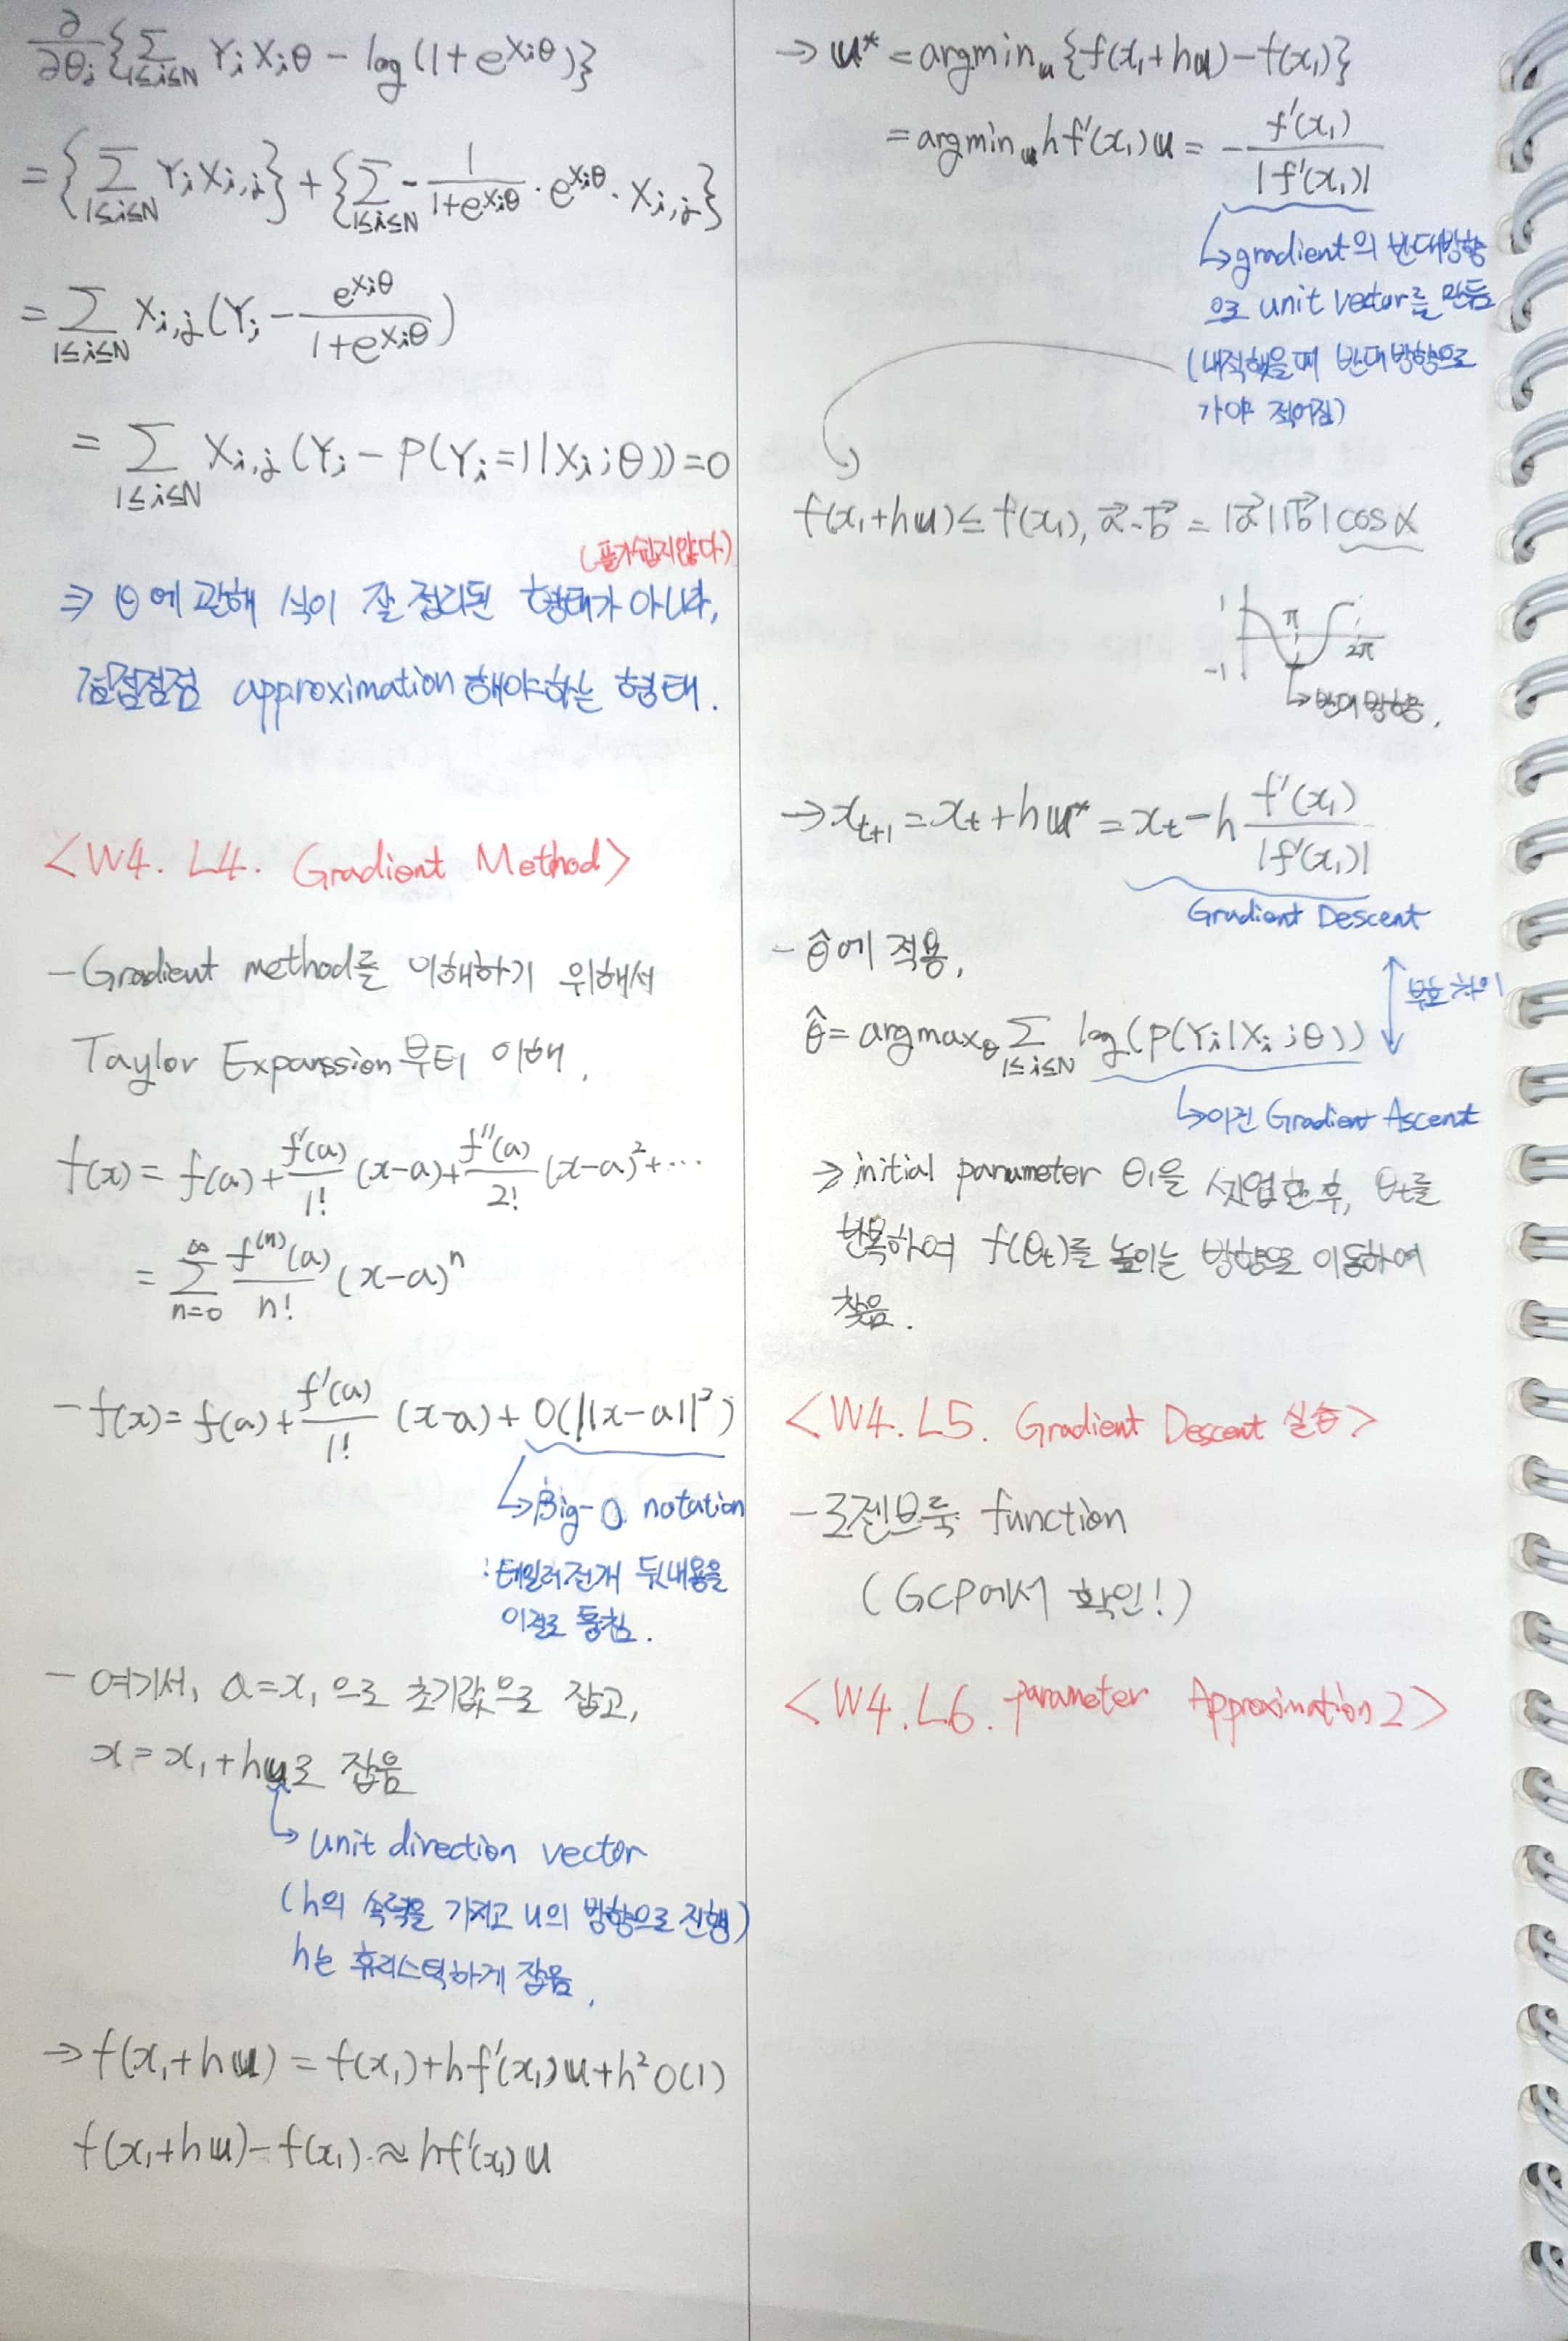 ∂/∂θj {Σ1≤i≤N YiXiθ − log(1+e^{Xiθ})}
= {Σ1≤i≤N YiXi,j} + {Σ1≤i≤N − 1/(1+e^{Xiθ}) · e^{Xiθ} · Xi,j}
= Σ1≤i≤N Xi,j(Yi − e^{Xiθ}/(1+e^{Xiθ}))
= Σ1≤i≤N Xi,j(Yi − P(Yi=1|Xi;θ))=0
(풀기 쉽지 않다)
⇒ θ에 관해 식이 잘 정리된 형태가 아니라,
점점점점 approximation 해야하는 형태.
<W4. L4. Gradient Method>
- Gradient method를 이해하기 위해서
Taylor Expanssion부터 이해.
f(x) = f(a) + f'(a)/1! (x−a) + f''(a)/2! (x−a)² + ···
= Σ_{n=0}^{∞} f^{(n)}(a)/n! (x−a)^n
- f(x) = f(a) + f'(a)/1! (x−a) + O(||x−a||²)
↳ Big-O notation
: 테일러전개 뒷내용을
이걸로 퉁침.
- 여기서, a=x₁으로 초기값으로 잡고,
x=x₁+hu로 잡음
↳ unit direction vector
(h의 속력을 가지고 u의 방향으로 진행)
h는 휴리스틱하게 잡음.
→ f(x₁+hu) = f(x₁)+hf'(x₁)u+h²O(1)
f(x₁+hu) − f(x₁) ≈ hf'(x₁)u
→ u* = argmin_u {f(x₁+hu)−f(x₁)}
= argmin_u hf'(x₁)u = − f'(x₁)/|f'(x₁)|
↳ gradient의 반대방향
으로 unit vector를 만듬
(내적했을때 반대방향으로
가야 적어짐)
f(x₁+hu) ≤ f(x₁), a⃗·b⃗ = |a⃗||b⃗|cos α
1 π 2π
-1
↳ 반대방향.
→ x_{t+1} = x_t + hu* = x_t − h f'(x₁)/|f'(x₁)|
Gradient Descent
- θ̂에 적용,
부호 차이
θ̂ = argmax_θ Σ1≤i≤N log(P(Yi|Xi;θ))
↳ 이건 Gradient Ascent
⇒ initial parameter θ₁을 셋업한 후, θt를
반복하여 f(θt)를 높이는 방향으로 이동하여
찾음.
<W4. L5. Gradient Descent 실습>
- 로젠브룩 function
(GCP에서 확인!)
<W4. L6. parameter Approximation 2>